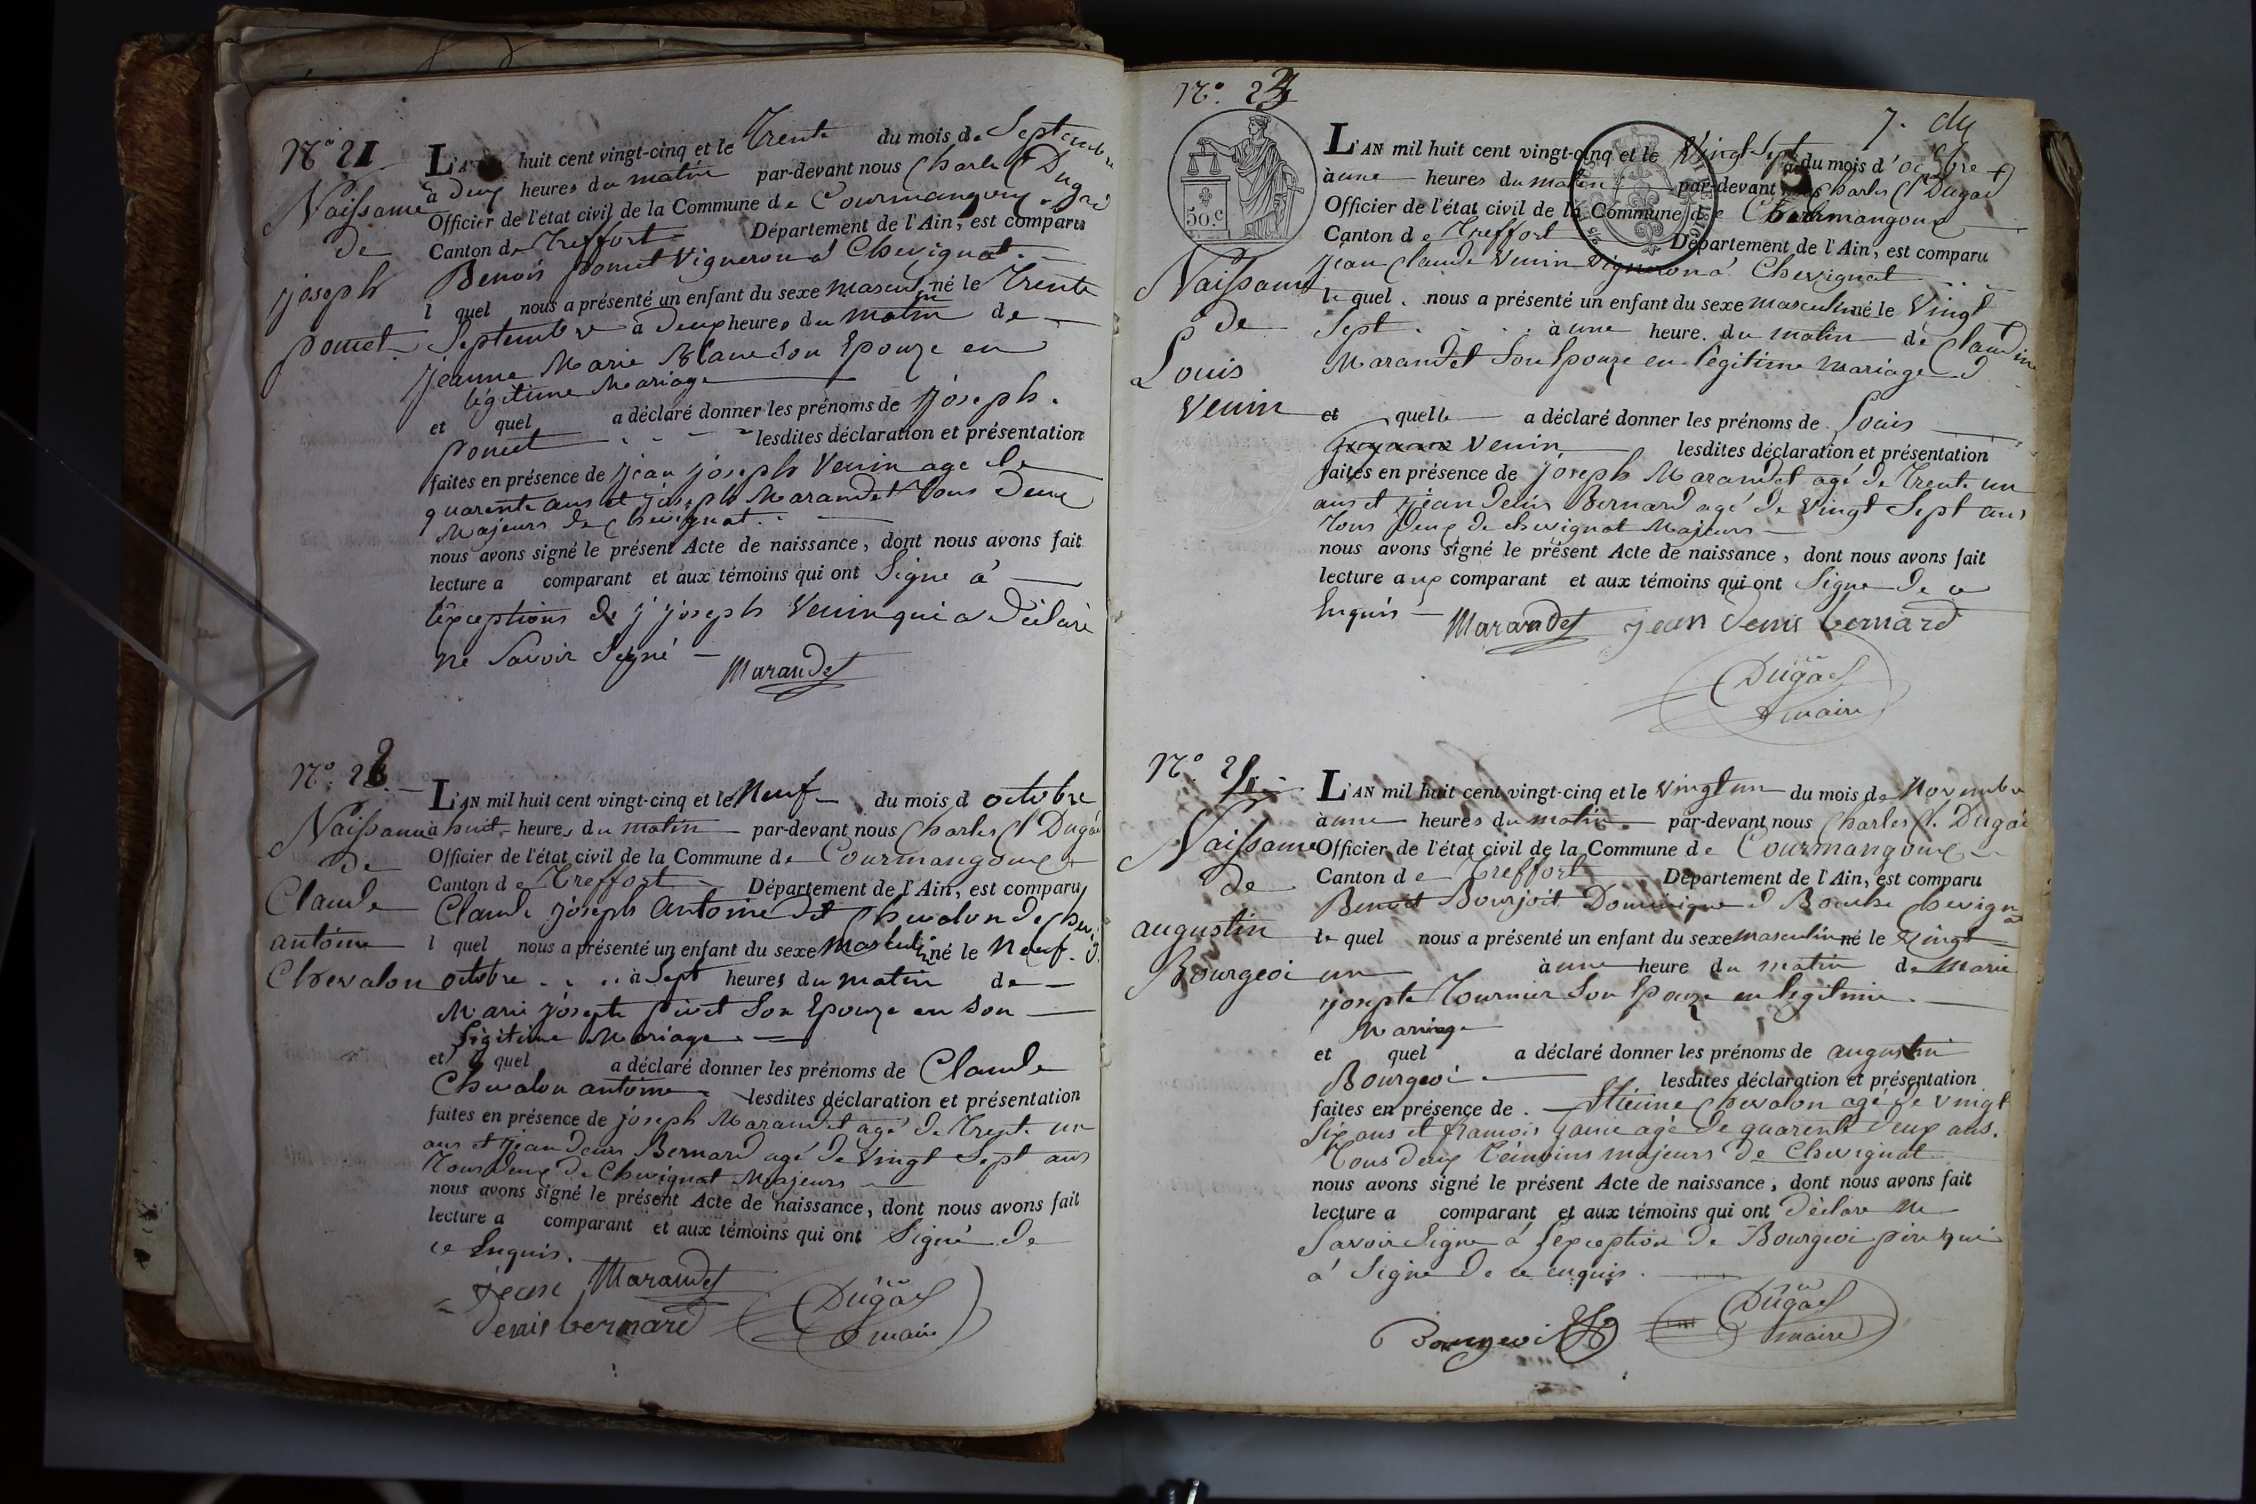 N.° 21
Naissance
de
joseph
pomet.
L'AN huit cent vingt-cinq et le Trente du mois de Septembre
à Deux heures du matin par-devant nous Charles Cl Dugad
Officier de l'état civil de la Commune de Courmangoux
Canton de Treffort Département de l'Ain, est comparu
Benoit pomet Vigneron à Chevignat
l quel nous a présenté un enfant du sexe mascul in né le Trente
Septembre à Deux heures du matin de
jeanne Marie Blanc Son Epouze en
legitime Mariage
et quel a déclaré donner les prénoms de joseph.
pomet lesdites déclaration et présentation
faites en présence de jean joseph Venin age de
quarente ans et joseph Marandet Tous Deux
Majeurs de Chevignat.
nous avons signé le présent Acte de naissance, dont nous avons fait
lecture a comparant et aux témoins qui ont Signe à
l'exceptions de j joseph Venin qui a Déclaré
ne Savoir Signé
Marandet
N.° 22
Naissance
de
Claude
antoine
Chevalon
L'AN mil huit cent vingt-cinq et le Neuf du mois d octobre
à huit heures du matin par-devant nous Charles Cl Dugad
Officier de l'état civil de la Commune de Courmangoux
Canton de Treffort Département de l'Ain, est comparu
Claude joseph Antoine Chevalon de
l quel nous a présenté un enfant du sexe Masculin né le Neuf.
octobre à Sept heures du matin de
Marie josepte pivet Son Epouze en Son
Légitime Mariage
et quel a déclaré donner les prénoms de Claude
Chevalon antoine lesdites déclaration et présentation
faites en présence de joseph Marandet agé de Trente un
ans et jean Denis Bernard agé de Vingt Sept ans
Tous Deux de Chevignat Majeurs
nous avons signé le présent Acte de naissance, dont nous avons fait
lecture a comparant et aux témoins qui ont Signé de
ce Enquis.
jean Marandet
Denis bernard
Dugad
maire
N.° 23
7. du
50.c
Naissance
de
Louis
Venin
L'AN mil huit cent vingt-cinq et le Vingt Sept du mois d'octbre
à une heures du matin par-devant nous Charles Cl Dugad
Officier de l'état civil de la Commune de Courmangoux
Canton de Treffort Département de l'Ain, est comparu
jean Claude Venin Vigneron à Chevignat
le quel nous a présenté un enfant du sexe masculin né le Vingt
Sept à une heure. du matin de Claudine
Marandet Son Epouze en légitime Mariage
et quelle a déclaré donner les prénoms de Louis
Venin lesdites déclaration et présentation
faites en présence de joseph Marandet agé de Trente un
ans et jean denis Bernard agé de Vingt Sept ans
Tous Deux de chevignat Majeurs
nous avons signé le présent Acte de naissance, dont nous avons fait
lecture aux comparant et aux témoins qui ont Signe De ce
Enquis
Marandet jean Denis bernard
Dugad
maire
N.° 24
Naissance
de
augustin
Bourgeoi
L'AN mil huit cent vingt-cinq et le Vingt un du mois de Novembre
à une heures du matin par-devant nous Charles Cl. Dugad
Officier de l'état civil de la Commune de Courmangoux
Canton de Treffort Département de l'Ain, est comparu
Benoit Bourjoit Chevignat
le quel nous a présenté un enfant du sexe masculin né le Vingt
un à une heure du matin de Marie
josepte Tournier Son Epouze en legitime
Mariage
et quel a déclaré donner les prénoms de augustin
Bourgeoi lesdites déclaration et présentation
faites en présence de Etienne Chevalon agé de Vingt
Six ans et francois agé de quarente Deux ans.
Tous deux Témoins majeurs de Chevignat
nous avons signé le présent Acte de naissance, dont nous avons fait
lecture a comparant et aux témoins qui ont Déclare ne
Savoir Signe à l'exception de Bourgeoi pere qui
à Signe De ce enquis.
Bourgeoi
Dugad
maire